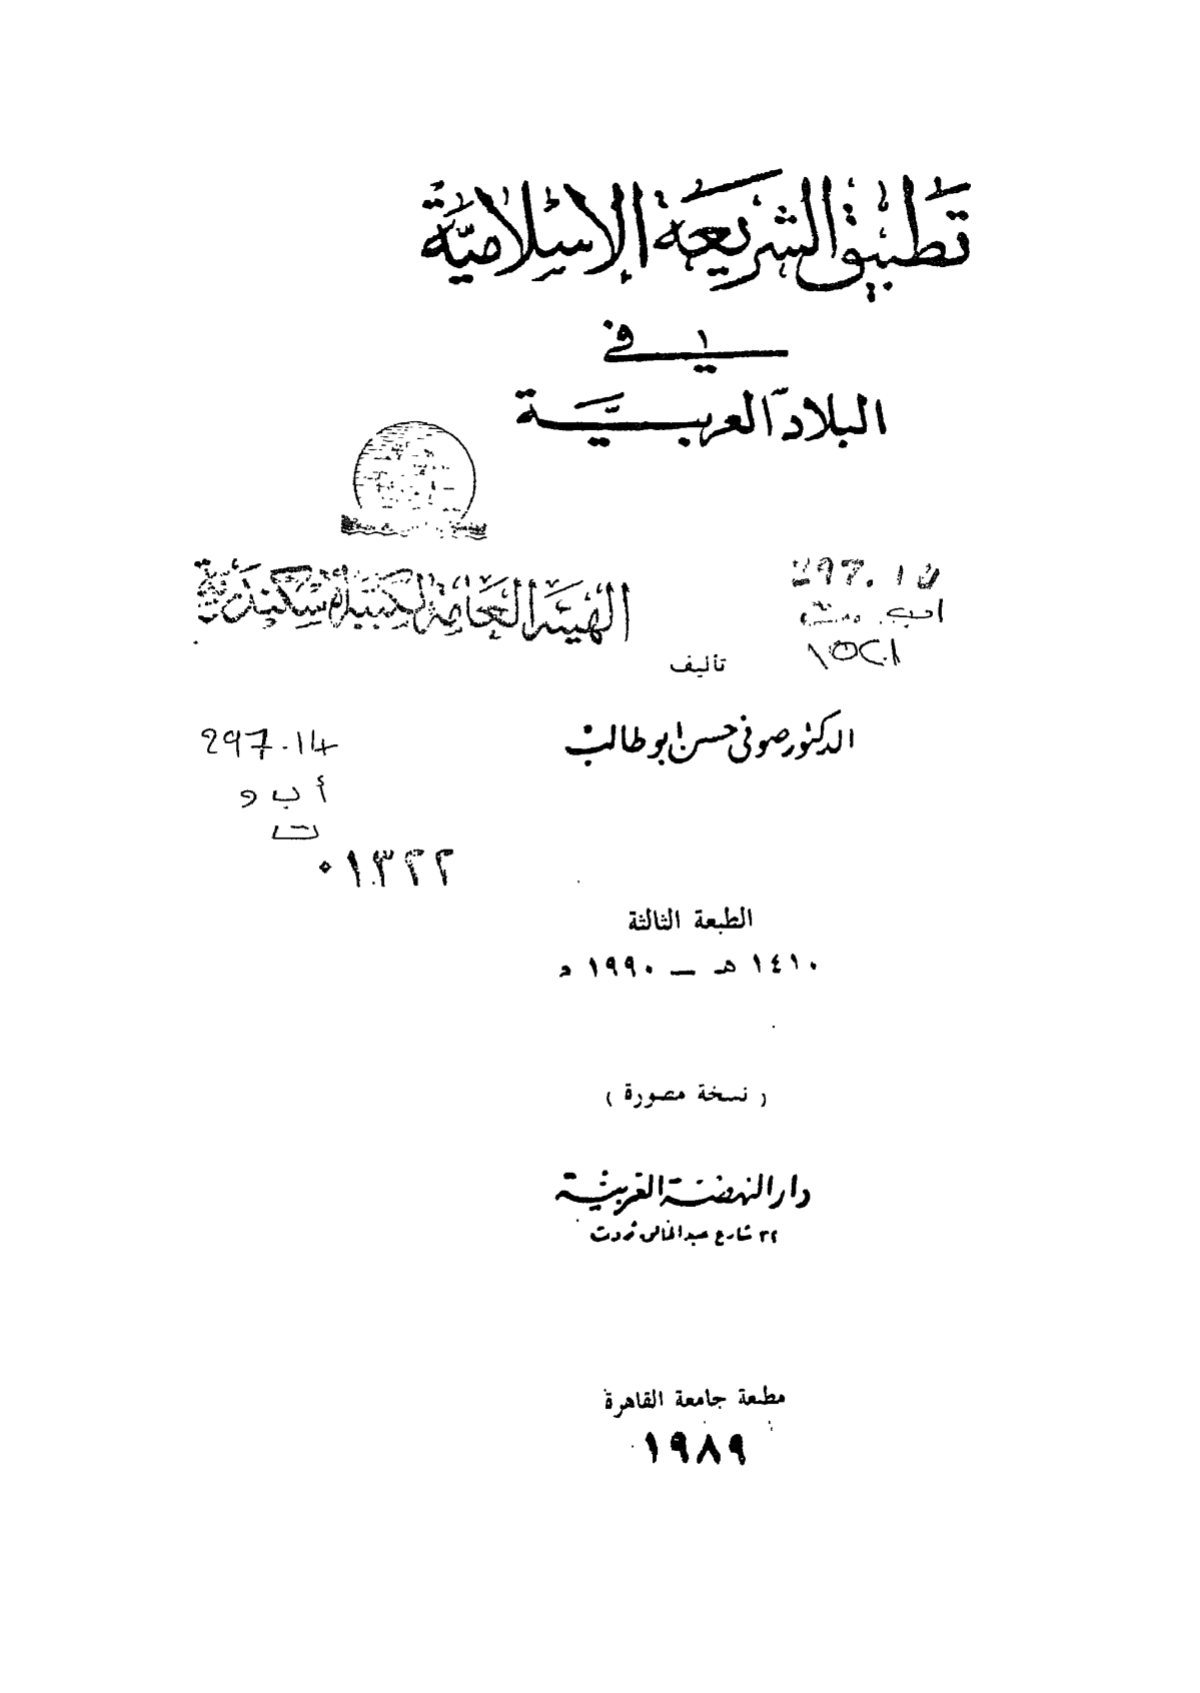 تطبيق الشريعة الإسلامية
في
البلاد العربية
الهيئة العامة لمكتبة الأسكندرية
297.14
تأليف
الدكتور صوفى حسن ابو طالب
297.14
أ ب و
ت
٠١٣٢٢
الطبعة الثالثة
١٤١٠ هـ — ١٩٩٠ م
( نسخة مصورة )
دار النهضة العربية
٣٢ شارع عبد الخالق ثروت
مطبعة جامعة القاهرة
١٩٨٩